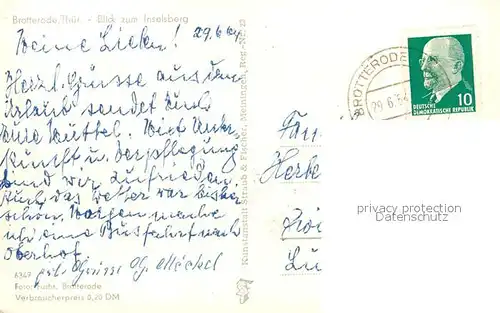 Brotterode, Thür. - Blick zum Inselsberg
29.6.64
Meine Lieben!
Herzl. Grüsse aus dem
Urlaub sendet Euch
Eure Mutti. Mit Unter-
kunft u. Verpflegung
sind wir zufrieden.
Auch das Wetter war bisher
schön. Morgen mache
ich eine Busfahrt nach
Oberhof.
6347
Foto: Fuchs, Brotterode
Verbraucherpreis 0,20 DM
Kunstanstalt Straub & Fischer, Meiningen, Reg.-Nr.
BROTTERODE
29.6.64
DEUTSCHE
DEMOKRATISCHE REPUBLIK
10
Fam.
privacy protection
Datenschutz